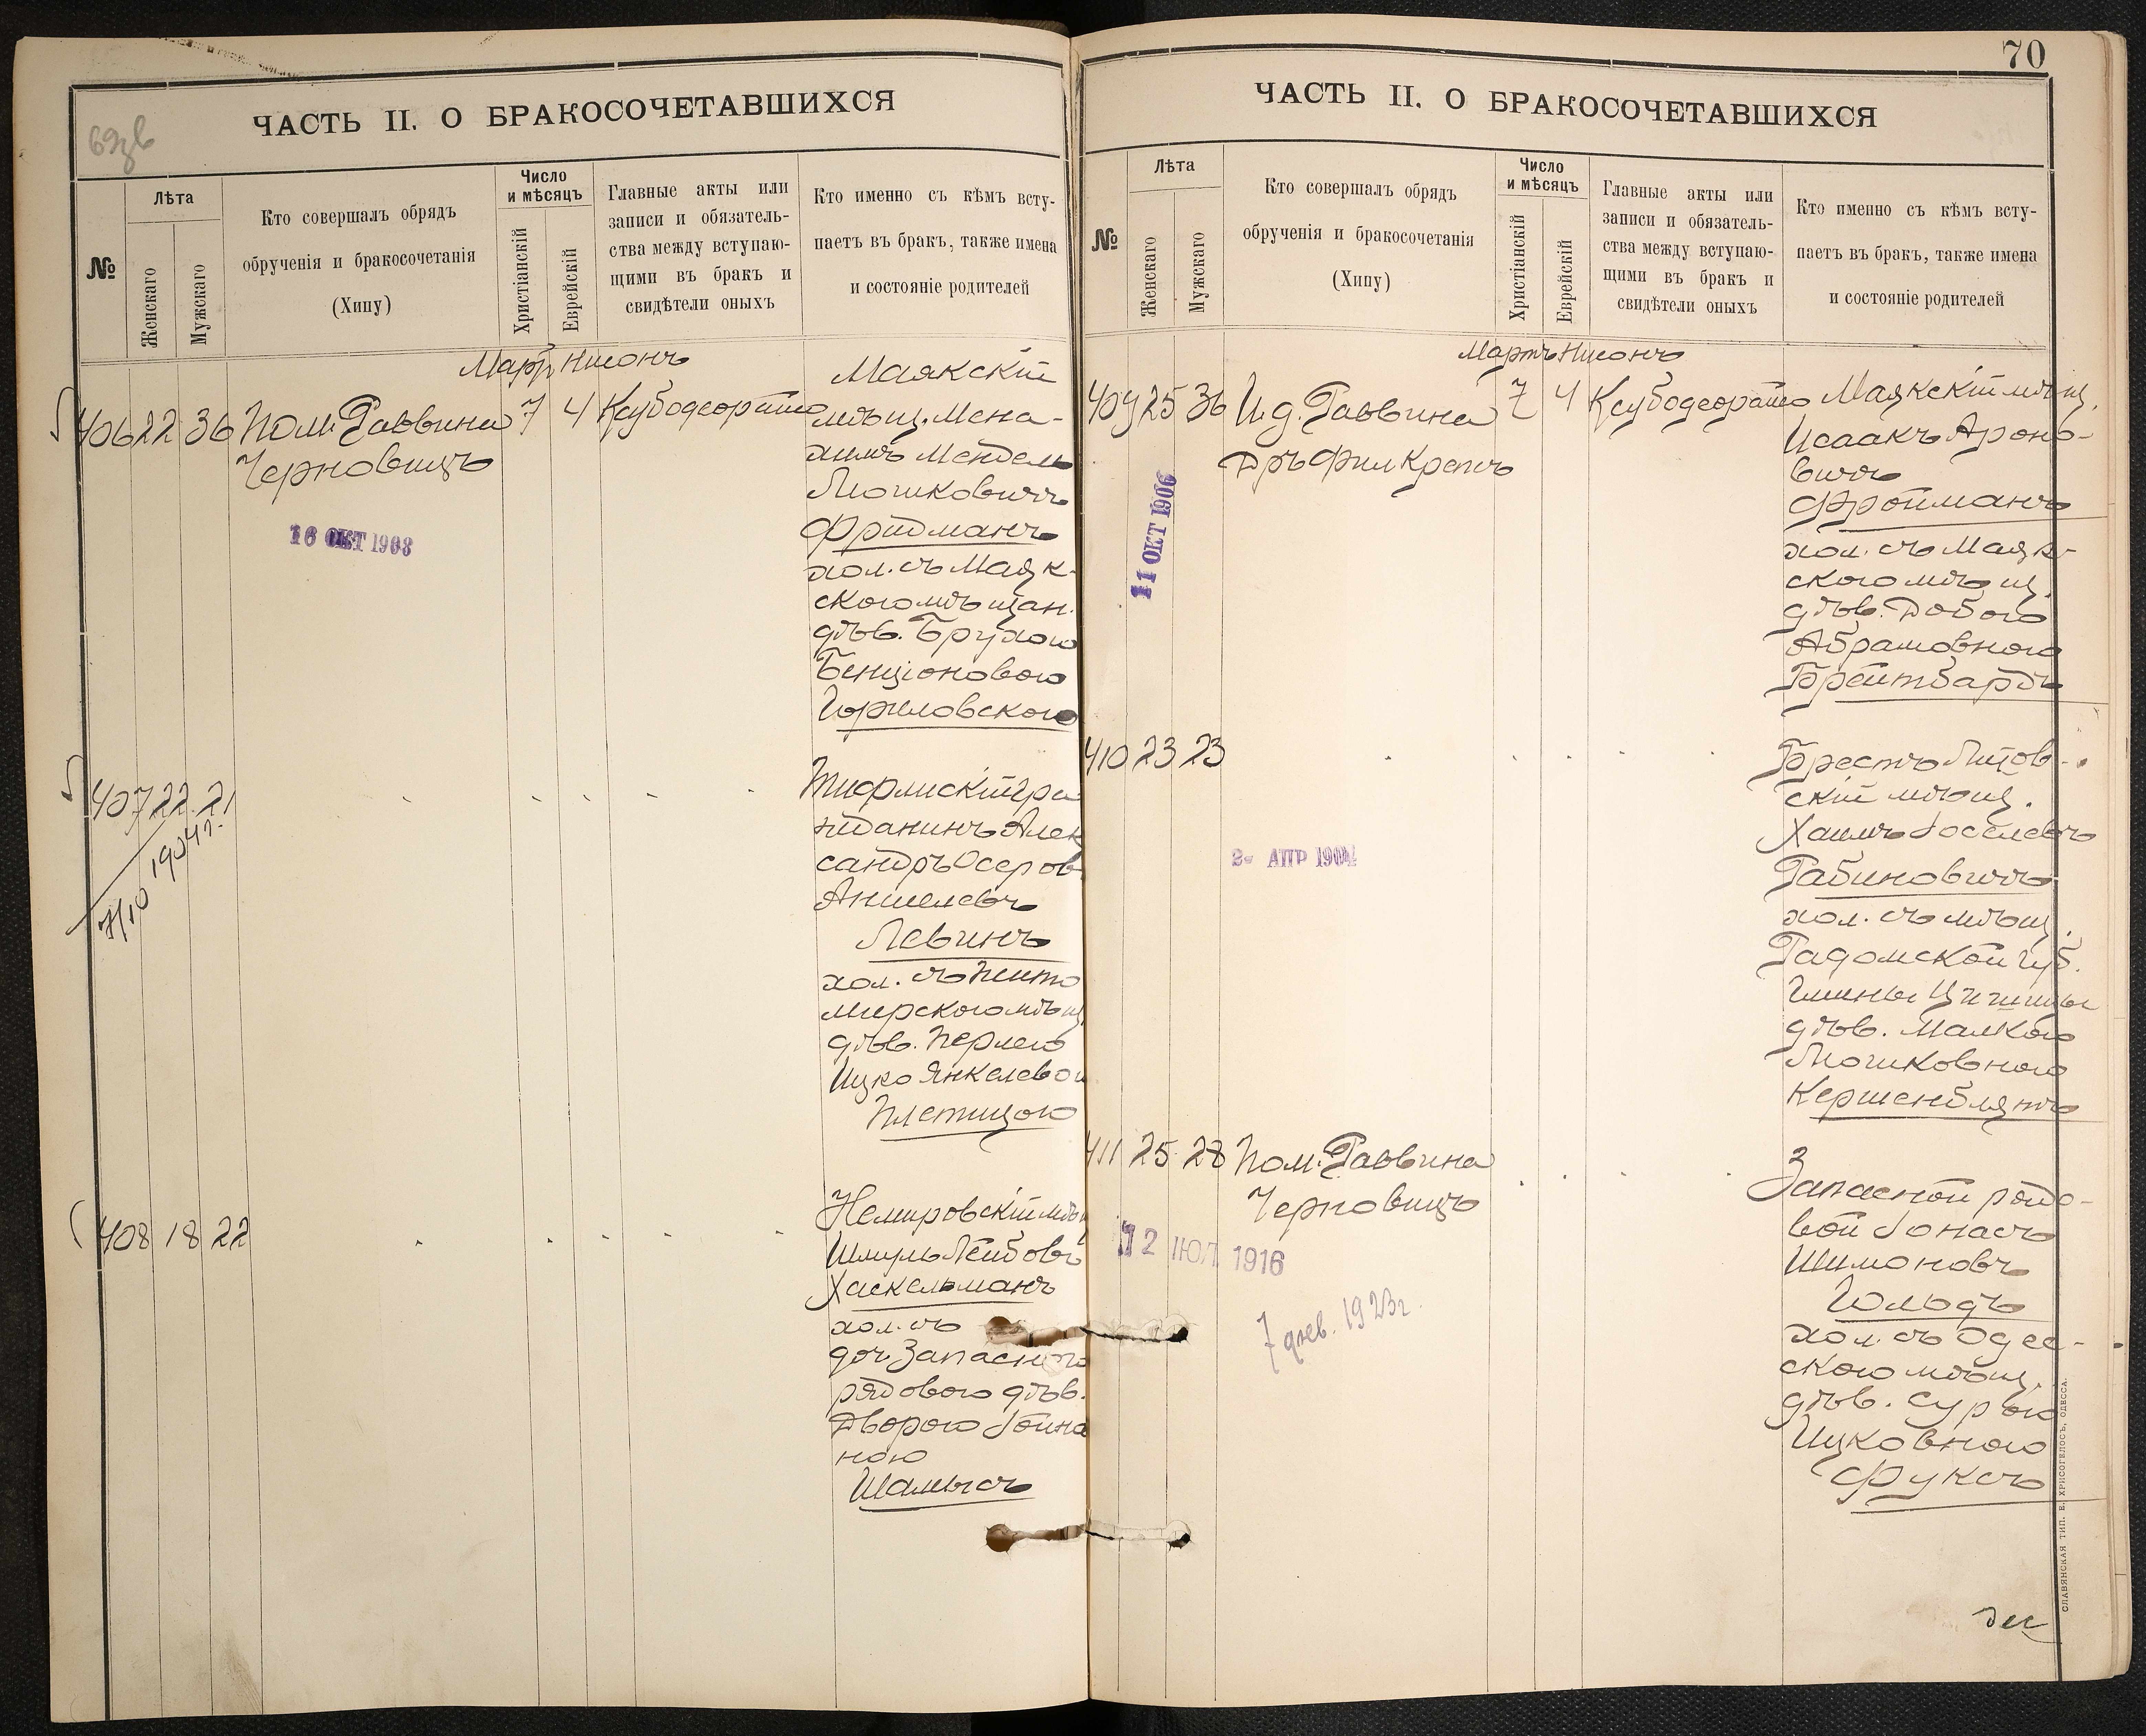 69зв
ЧАСТЬ II. О БРАКОСОЧЕТАВШИХСЯ
№
Лѣта
Женскаго
Мужскаго
Кто совершалъ обрядъ
обрученія и бракосочетанія
(Хипу)
Число
и мѣсяцъ
Христіанскій
Еврейскій
Главные акты или
записи и обязатель-
ства между вступаю-
щими въ бракъ и
свидѣтели оныхъ
Кто именно съ кѣмъ всту-
паетъ въ бракъ, также имена
и состояніе родителей
Мартъ Нисонъ
406 22 36 Пом. Раввина 7 4
Черновицъ
16 ОКТ 1903
Маякскій
мѣщ. Мена-
химъ Мендель
Мошковичъ
Фридманъ
хол. съ Маяк-
скою мѣщан.
дѣв. Брухою
Бенціоновою
Гориловскою
407 22 21
7/10 1904 г.
Тифлискій гра
жданинъ Алек
сандръ Осеров
Аншелевъ
Левинъ
хол. съ Жито
мирскою мѣщ.
дѣв. Перлею
Ицко Янкелевой
Плетицою
408 18 22
Немировскій мѣщ
Шмуль Лейбовъ
Хаскельманъ
хол. съ
доч. Запасного
рядового дѣв.
Дворою
ною
Шамысъ
70
ЧАСТЬ II. О БРАКОСОЧЕТАВШИХСЯ
№
Лѣта
Женскаго
Мужскаго
Кто совершалъ обрядъ
обрученія и бракосочетанія
(Хипу)
Число
и мѣсяцъ
Христіанскій
Еврейскій
Главные акты или
записи и обязатель-
ства между вступаю-
щими въ бракъ и
свидѣтели оныхъ
Кто именно съ кѣмъ всту-
паетъ въ бракъ, также имена
и состояніе родителей
Мартъ Нисонъ
409 25 36 И.д. Раввина 7 4
Дръ
11 ОКТ 1906
Маякскій мѣщ.
Исаакъ Ароно-
вичъ
Фройманъ
хол. съ Маяк-
скою мѣщ.
дѣв. Добою
Абрамовною
Брейтбардъ
410 23 23
2- АПР 1904
Брестъ Литов-
скій мѣщ.
Хаимъ Іоселевъ
Рабиновичъ
хол. съ мѣщ.
Радомской губ.
Гмины
дѣв. Малкою
Мошковною
Кершенблятъ
411 25 28 Пом. Раввина
Черновицъ
12 ІЮЛ 1916
7 фев. 1923 г.
Запасной рядо-
вой Іонасъ
Шимоновъ
Гольдъ
хол. съ Одес-
скою мѣщ.
дѣв. Сурою
Ицковною
Фуксъ
СЛАВЯНСКАЯ ТИП. Е. ХРИСОГЕЛОСЪ, ОДЕССА.